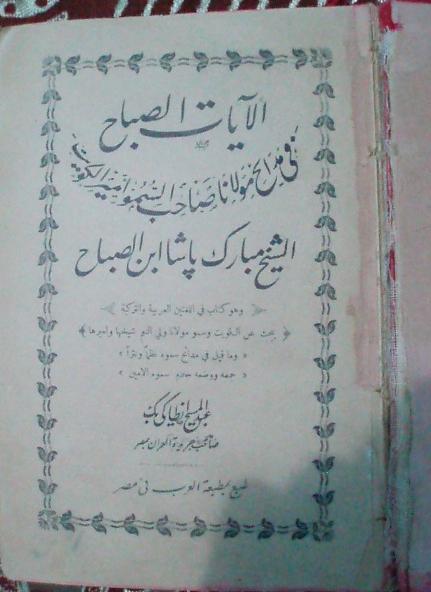 الآيات الصباح
في مدائح مولانا صاحب السمو أمير الكويت
الشيخ مبارك پاشا ابن الصباح
وهو كتاب في اللغتين العربية والتركية
يبحث عن الكويت وسمو مولانا ولي النعم شيخها وأميرها
« وما قيل في مدائح سموه نظماً ونثراً »
« جمعه ووضعه خادم سموه الامين »
عبد المسيح انطاكي بك
صاحب جريدة العمران بمصر
طبع بمطبعة العرب في مصر